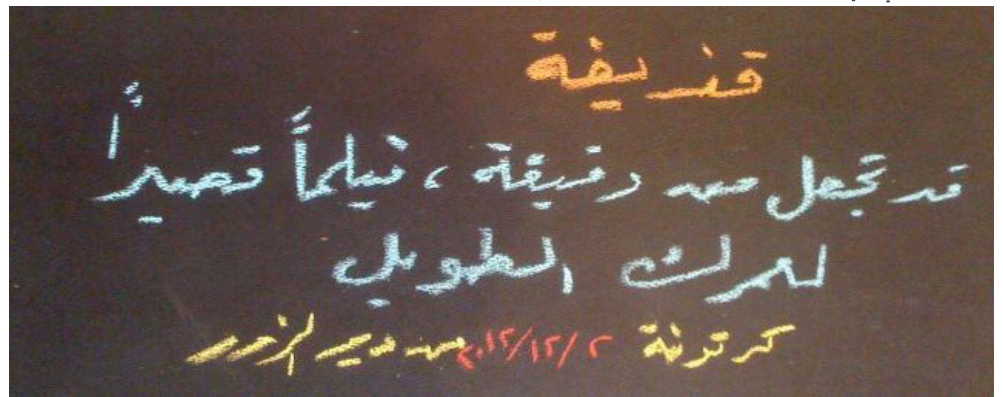 قذيفة
قد تجعل من دقيقة ، فيلماً قصيراً
لعمرك الطويل
كرتونة ٢/١٢/٢٠١٢ من دير الزور